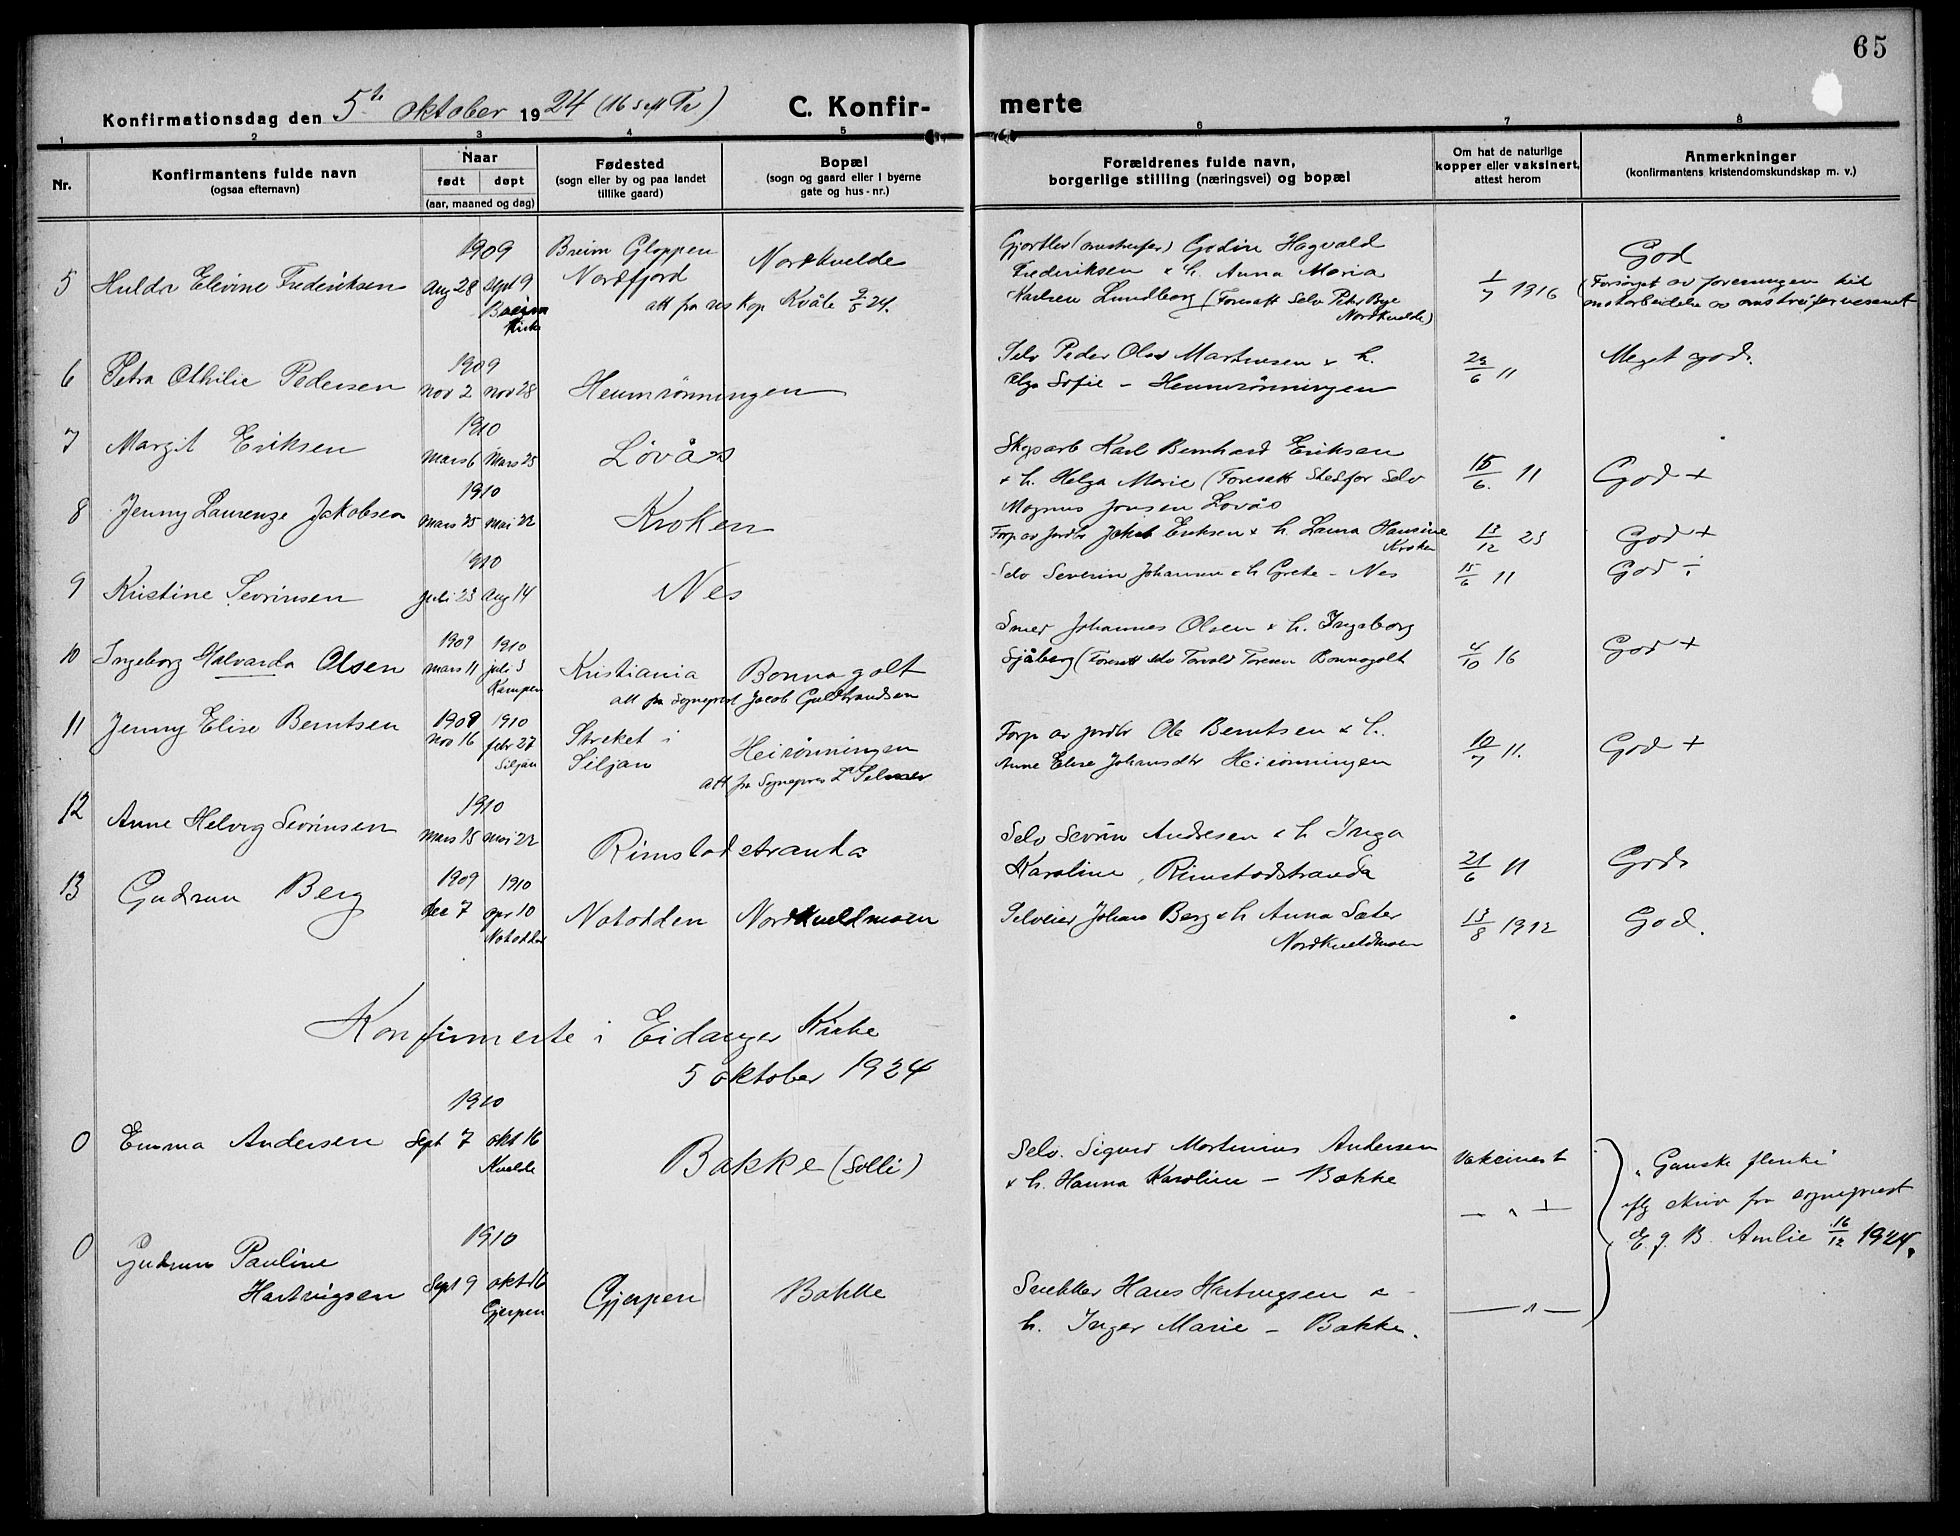 65
Konfirmationsdag den 5te oktober 1924 (16 s eft Tr)
C. Konfirmerte
1 2 3 4 5 6 7 8
Nr.
Konfirmantens fulde navn
(ogsaa efternavn)
Naar
født døpt
(aar, maaned og dag)
Fødested
(sogn eller by og paa landet
tillike gaard)
Bopæl
(sogn og gaard eller i byerne
gate og hus-nr.)
Forældrenes fulde navn,
borgerlige stilling (næringsvei) og bopæl
Om hat de naturlige
kopper eller vaksinert,
attest herom
Anmerkninger
(konfirmantens kristendomskundskap m. v.)
5 Hulda Elevine Frederiksen
1909
Aug 28 Sept 9
Breim
Kirke
Breim Gloppen
Nordfjord
Nordkvelde
att fra res kap Kvåle 9/5 24.
Gjørtler (omstreifer) Godin Hagvald
Frederiksen & h. Anna Maria
Karlsen Lundberg (Foresatt Selv Peter Bye
Nordkvelde)
1/7 1916
God
(Forsørget av foreningen til
motarbeidelse av omstreifervesenet
6 Petra Othilie Pedersen
1909
nov 2 nov 28
Heumrönningen
Selv Peder Olav Martinsen & h.
Olga Sofie – Heumrönningen
23/6 11
Meget god.
7 Margit Eriksen
1910
Mars 6 Mars 25
Lövås
Skogsarb Karl Bernhard Eriksen
& h. Helga Marie (Foresatt Stedfar Selv
Magnus Jonsen Lövås
15/6. 11
God +
8 Jenny Laurenze Jakobsen
1910
Mars 25 Mai 22
Kroken
Forp av jordbr Jakob Eriksen & h. Laura Hansine
Kroken
13/12 23
God +
9 Kristine Sevrinsen
1910
Juli 23 Aug 14
Nes
Selv Severin Johansen & h Grete – Nes
15/6 11
God ÷
10 Ingeborg Halvarda Olsen
1909 1910
Mars 11 juli 3
Kampen
Kristiania
Bonnagolt
att fra Sogneprest Jacob Gulbrandsen
Smed Johannes Olsen & h. Ingeborg
Sjåberg (Foresatt selv Torvald Toresen Bonnagolt
4/10 16
God +
11 Jenny Elise Berntsen
1909 1910
nov 16 febr 27
Siljan
Streket i
Siljan
Heirönningen
att fra Sogneprest L Selmer
Forp av jordbr Ole Berntsen & h.
Anne Elise Johansdtr Heirönningen
10/7 11.
God +
12 Anne Helvig Sevrinsen
1910
Mars 15 Mai 22
Rimstadstranda
Selv Sevrin Andresen & h Inga
Karoline, Rimstadstranda
21/6 11
God.
13 Gudrun Berg
1909 1910
dec 7 apr 10
Notodden
Notodden
Nordkveldmoen
Selveier Johan Berg & h Anna Sæter
Nordkveldmoen
13/8 1912
God.
Konfirmerte i Eidanger Kirke
5 oktober 1924
0 Emma Andersen
1910
Sept 7 okt 16
Kvelde
Bakke (Solli)
Selv. Sigurd Martinius Andersen
& h. Hanna Karoline – Bakke
Vakcinert
— " —
"Ganske flink"
iflg skriv fra sogneprest
E. g. B. Amlie 16/12 1924.
0 Gudrun Pauline
Hartvigsen
1910
Sept 9 okt 16
Gjerpen
Gjerpen
Bakke
Snekker Hans Hartvigsen &
h. Inger Marie – Bakke.
— " —